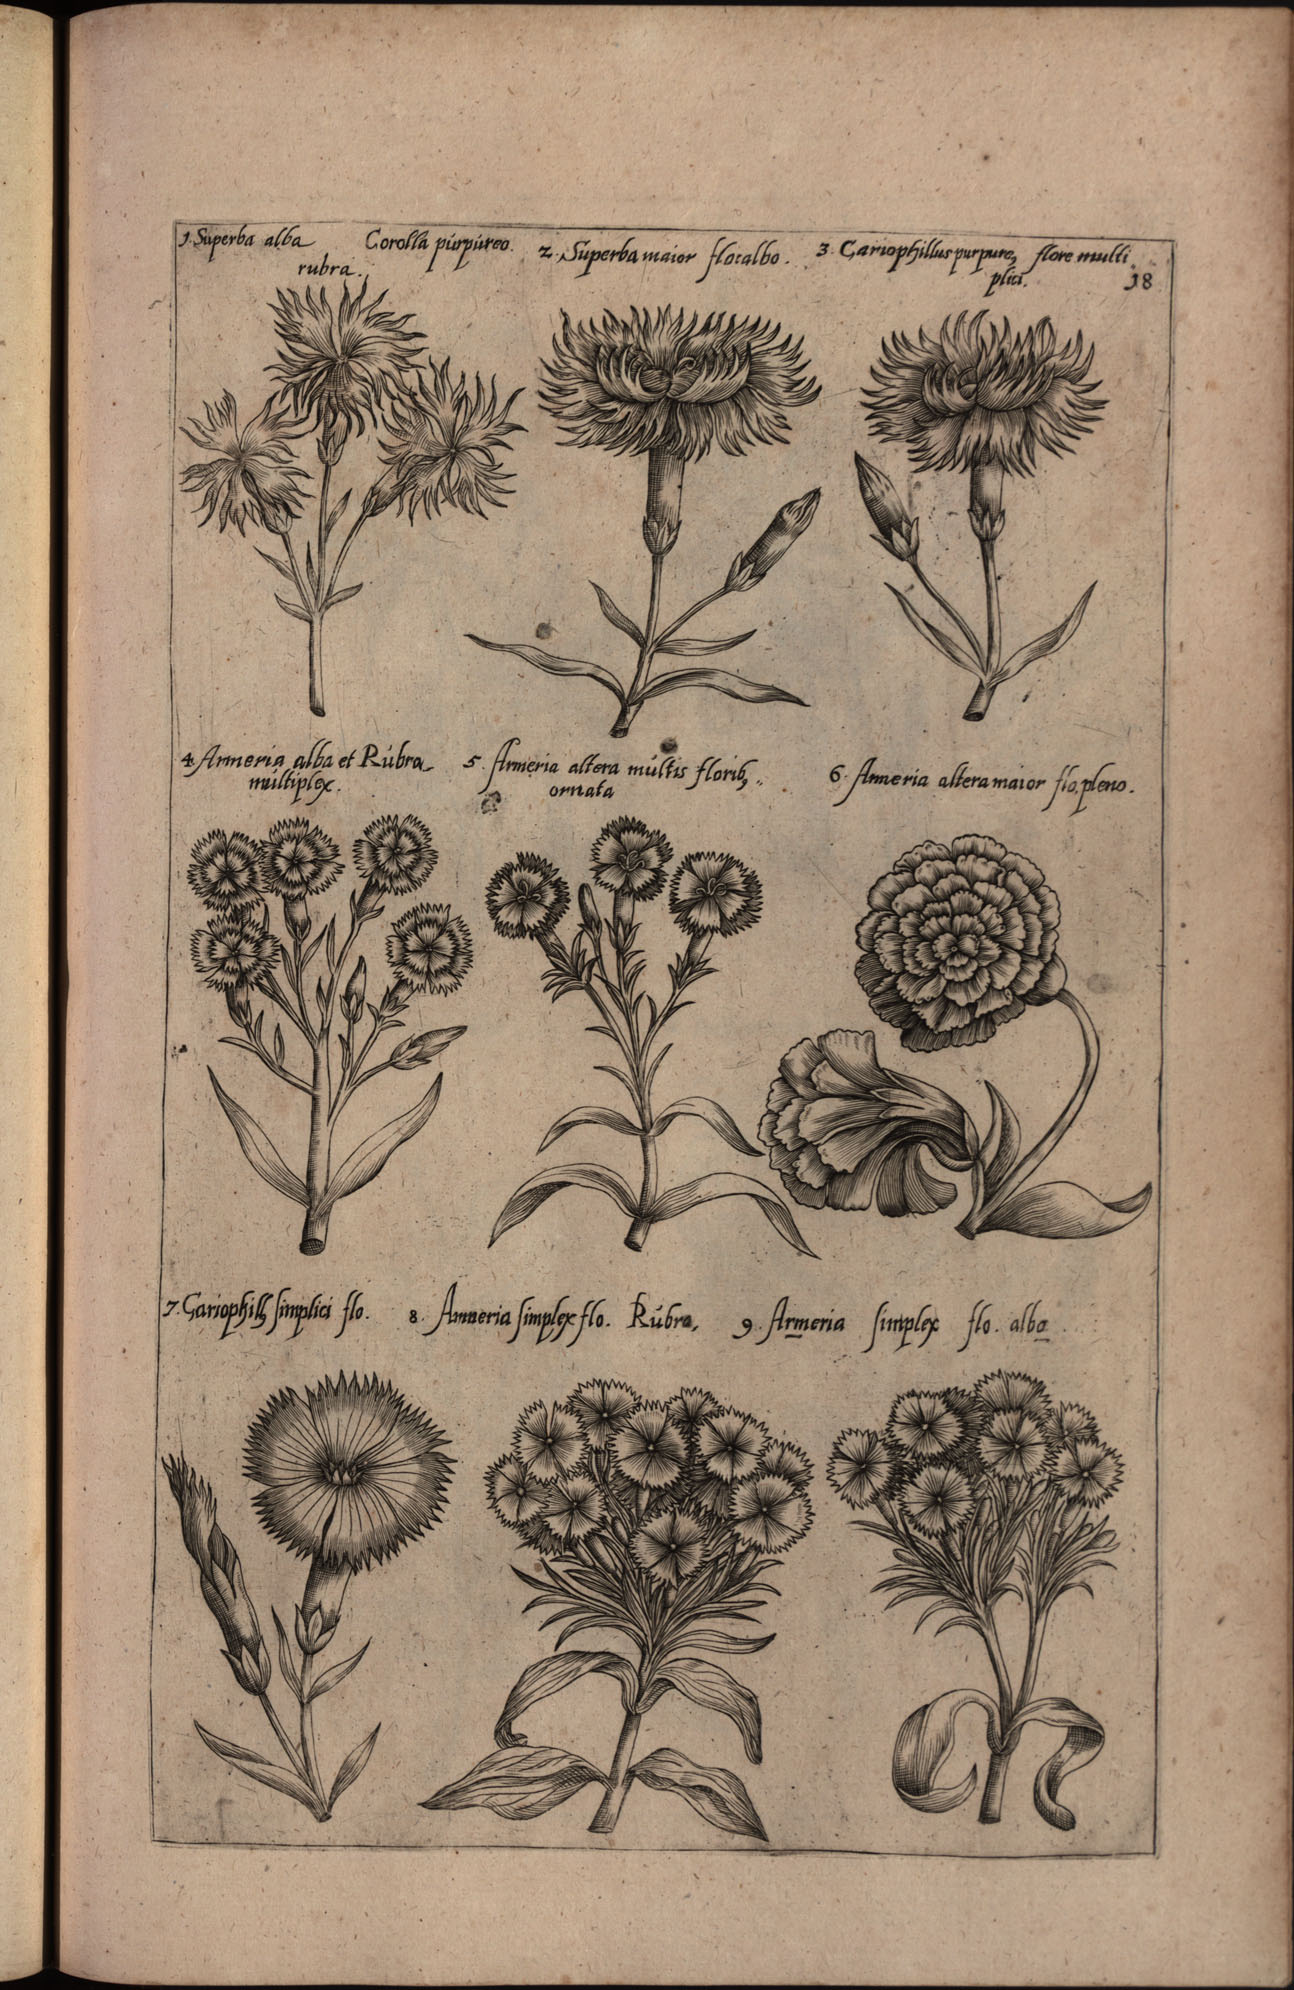 1. Superba alba Corolla púrpúreo.
rubra.
2. Superba maior flo: albo.
3. Cariophillus purpure9 flore multi
plici.
18
4. Armeria alba et Rúbra
múltiplex.
5. Armeria altera múltis florib9
ornata
6. Armeria altera maior flo. pleno.
7. Cariophill9 simplici flo.
8. Armeria simplex flo. Rúbro.
9. Armeria simplex flo. albo